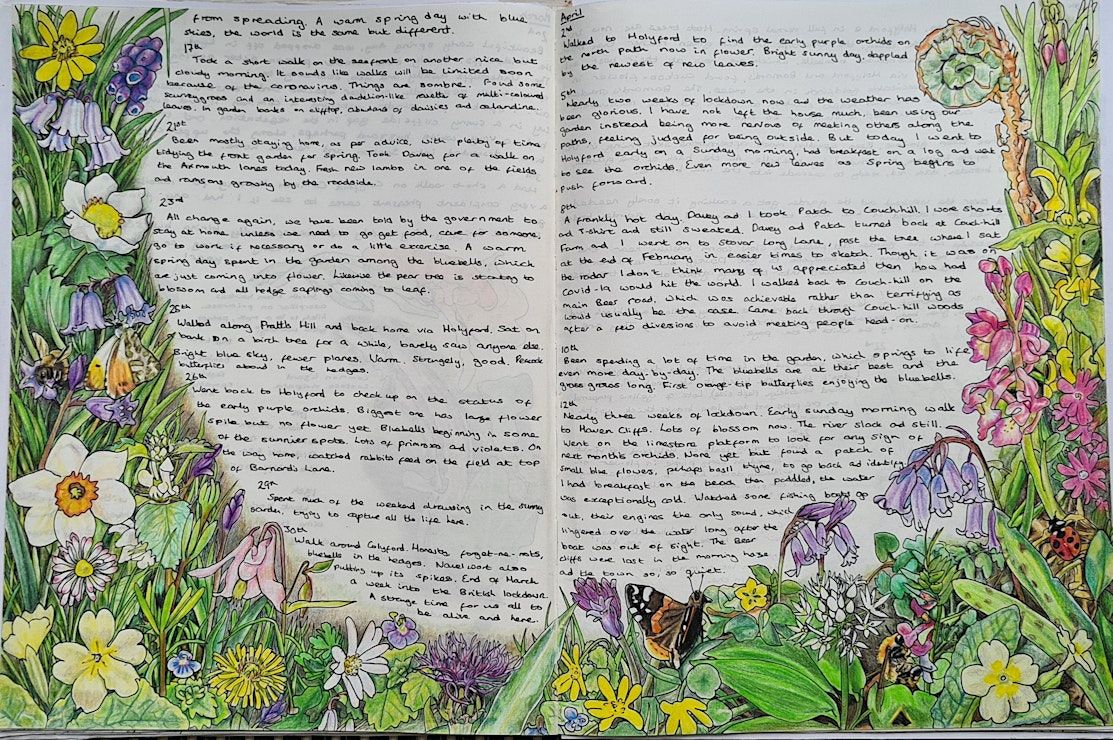 from spreading. A warm spring day with blue
skies, the world is the same but different.
17th
Took a short walk on the seafront on another nice but
cloudy morning. It sounds like walks will be limited soon
because of the coronavirus. Things are sombre. Found some
scurvygrass and an interesting dandelion-like rosette of multi-coloured
leaves. In garden banks on clifftop, abundance of daisies and celandine.
21st
Been mostly staying home, as per advice, with plenty of time
tidying the front garden for spring. Took Davey for a walk on
the Axmouth lanes today. Fresh new lambs in one of the fields
and ramsons growing by the roadside.
23rd
All change again, we have been told by the government to
stay at home unless we need to go get food, care for someone,
go to work if necessary or do a little exercise. A warm
spring day spent in the garden among the bluebells, which
are just coming into flower. Likewise the pear tree is starting to
blossom and all hedge saplings coming to leaf.
25th
Walked along Pratts Hill and back home via Holyford. Sat on
bark on a birch tree for a while, barely saw anyone else.
Bright blue sky, fewer planes. Warm. Strangely, good. Peacock
butterflies about in the hedges.
26th
Went back to Holyford to check up on the status of
the early purple orchids. Biggest one has large flower
spike but no flower yet. Bluebells beginning in some
of the sunnier spots. Lots of primrose and violets. On
the way home, watched rabbits feed on the field at top
of Barnards Lane.
29th
Spent much of the weekend drawing in the sunny
garden, trying to capture all the life here.
30th
Walk around Colyford. Honesty, forget-me-nots,
bluebells in the hedges. Navelwort also
putting up its spikes. End of March
a week into the British lockdown.
A strange time for us all to
be alive and here.
April
2nd
Walked to Holyford to find the early purple orchids on
the north path now in flower. Bright sunny day, dappled
by the newest of new leaves.
5th
Nearly two weeks of lockdown now and the weather has
been glorious. I have not left the house much, been using our
garden instead being more nervous of meeting others along the
paths, feeling judged for being outside. But today I went to
Holyford early on a Sunday morning, had breakfast on a log and went
to see the orchids. Even more new leaves as spring begins to
push forward.
9th
A frankly hot day. Davey and I took Patch to Couchhill. I wore shorts
and T-shirt and still sweated. Davey and Patch turned back at Couchhill
Farm and I went on to Stover Long Lane, past the tree where I sat
at the end of February in easier times to sketch. Though it was on
the radar I don't think many of us appreciated then how hard
Covid-19 would hit the world. I walked back to Couch-hill on the
main Beer road, which was achievable rather than terrifying as
would usually be the case. Came back through Couch-hill woods
after a few diversions to avoid meeting people head-on.
10th
Been spending a lot of time in the garden, which springs to life
even more day-by-day. The bluebells are at their best and the
grass grows long. First orange-tip butterflies enjoying the bluebells.
12th
Nearly three weeks of lockdown. Early Sunday morning walk
to Haven Cliffs. Lots of blossom now. The river slack and still.
Went on the limestone platform to look for any sign of
next months orchids. None yet but found a patch of
small blue flowers, perhaps basil thyme, to go back and identify.
I had breakfast on the beach then paddled, the water
was exceptionally cold. Watched some fishing boats go
out, their engines the only sound, which
lingered over the water long after the
boat was out of sight. The Beer
cliffs were lost in the morning haze
and the town so, so quiet.